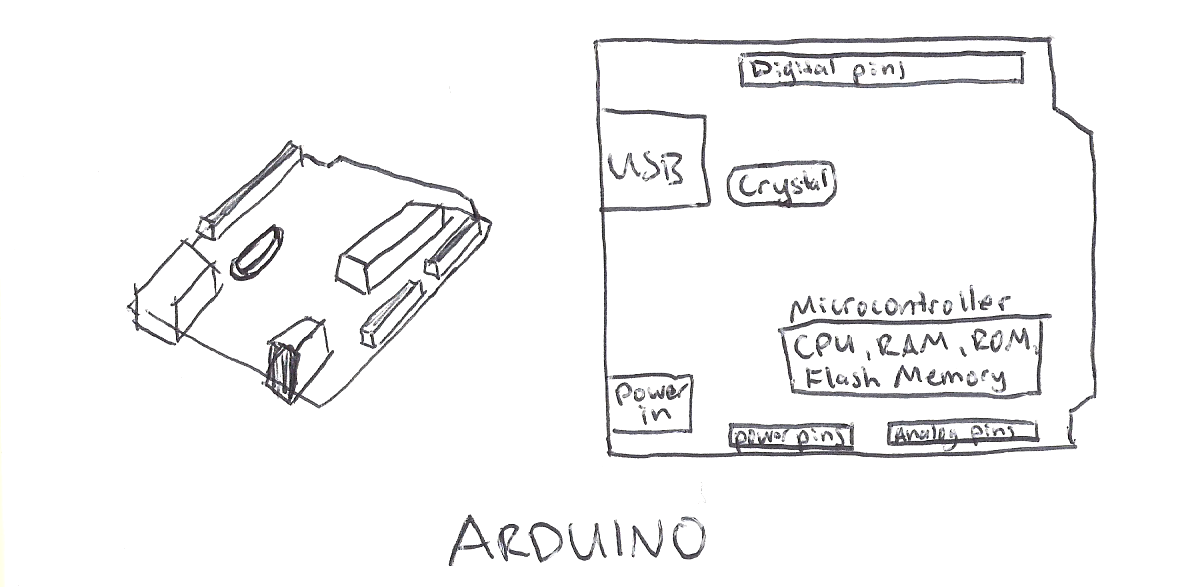 Digital pins
USB
Crystal
Microcontroller
CPU, RAM, ROM,
Flash Memory
Power
in
power pins
Analog pins
ARDUINO